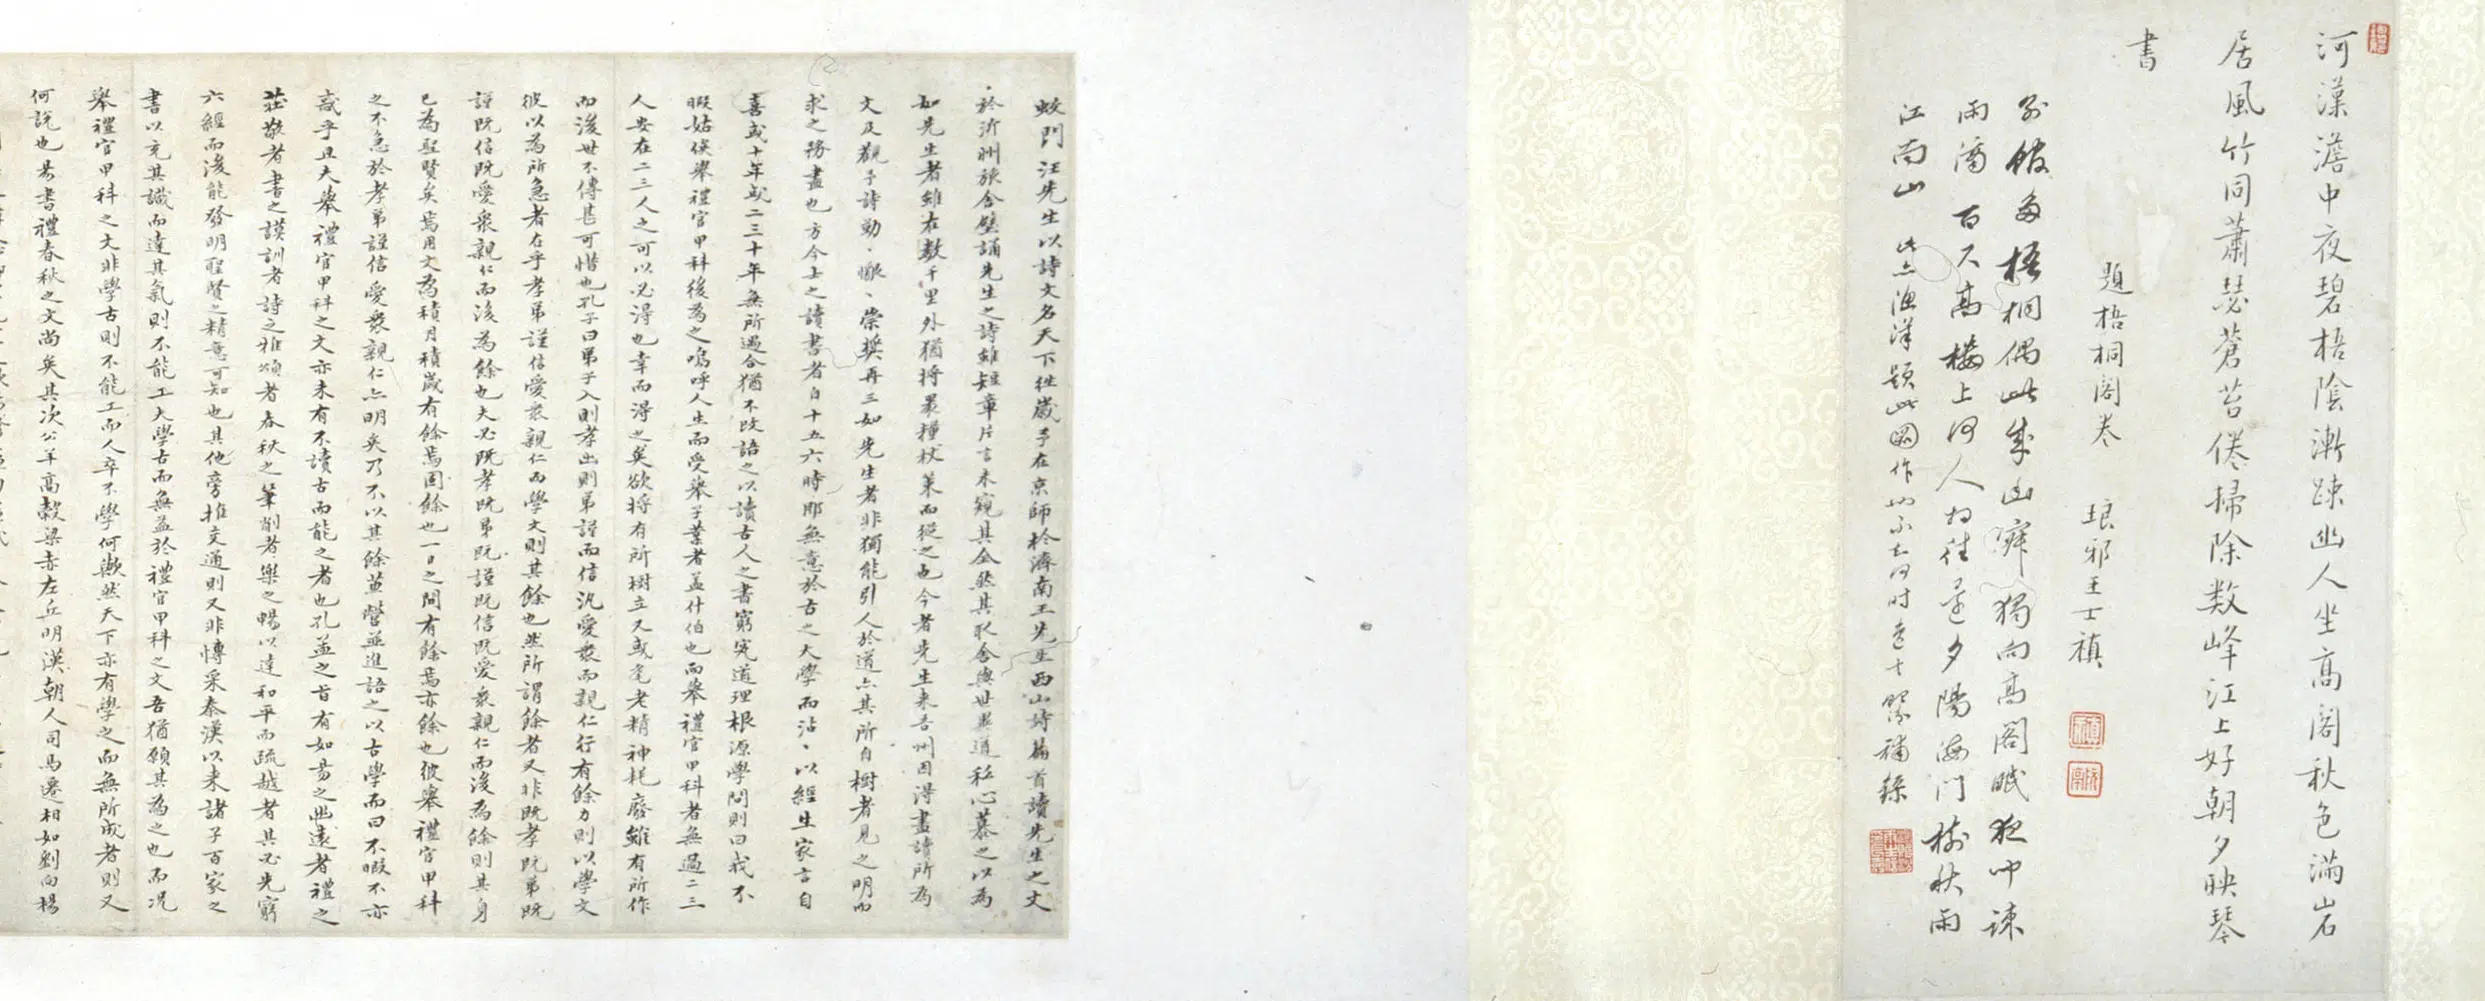 河漢澹中夜碧梧陰漸疎幽人坐高閣秋色滿岩
居風竹同蕭瑟蒼苔倦掃除數峰江上好朝夕映琴
書
題梧桐閣卷 琅邪王士禛
多梧桐偶此成幽癖獨向高閣眠夜聞疎
雨滴 百尺高樓上何人相往還夕陽海門樹秋雨
江南山 此亦漁洋題此圖作
蛟門汪先生以詩文名天下往歲予在京師於濟南王先生西山詩篇首讀先生之文
於沂州旅舍壁誦先生之詩雖短章片言未窺其全然其取舍與世異道私心慕之以為
如先生者雖在數千里外猶將裹糧杖策而從之也今者先生來吾州因得盡讀所為
文及觀予詩勤、懇、崇獎再三如先生者非獨能引人於道亦其所自樹者見之明而
求之務盡也方今士之讀書者自十五六時即無意於古之大學而沾、以經生家言自
喜或十年或二三十年無所遇合猶不改語之以讀古人之書窮究道理根源學問則曰我不
暇姑俟舉禮官甲科後為之嗚呼人生而受舉子業者蓋什伯也而舉禮官甲科者無過二三
人安在二三人之可以必得也幸而得之矣欲將有所樹立又或耄老精神耗廢雖有所作
而後世不傳甚可惜也孔子曰弟子入則孝出則弟謹而信汎愛眾而親仁行有餘力則以學文
彼以為所急者在乎孝弟謹信愛眾親仁而學文則其餘也然所謂餘者又非既孝既弟既
謹既信既愛眾親仁而後為餘也夫必既孝既弟既謹既信既愛眾親仁而後為餘則其身
已為聖賢矣焉用文為積月積歲有餘焉固餘也一日之間有餘焉亦餘也彼舉禮官甲科
之不急於孝弟謹信愛眾親仁亦明矣乃不以其餘並營並進語之以古學而曰不暇不亦
惑乎且夫舉禮官甲科之文亦未有不讀古而能之者也孔孟之旨有如易之幽遠者禮之
莊敬者書之謨訓者詩之雅頌者春秋之筆削者樂之暢以達和平而疏越者其必先窮
六經而後能發明聖賢之精意可知也其他旁推交通則又非博采秦漢以來諸子百家之
書以充其識而達其氣則不能工夫學古而無益於禮官甲科之文吾猶願其為之也而況
舉禮官甲科之文非學古則不能工而人卒不學何歟然天下亦有學之而無所成者則又
何說也易書禮春秋之文尚矣其次公羊高穀梁赤左丘明漢朝人司馬遷相如劉向楊